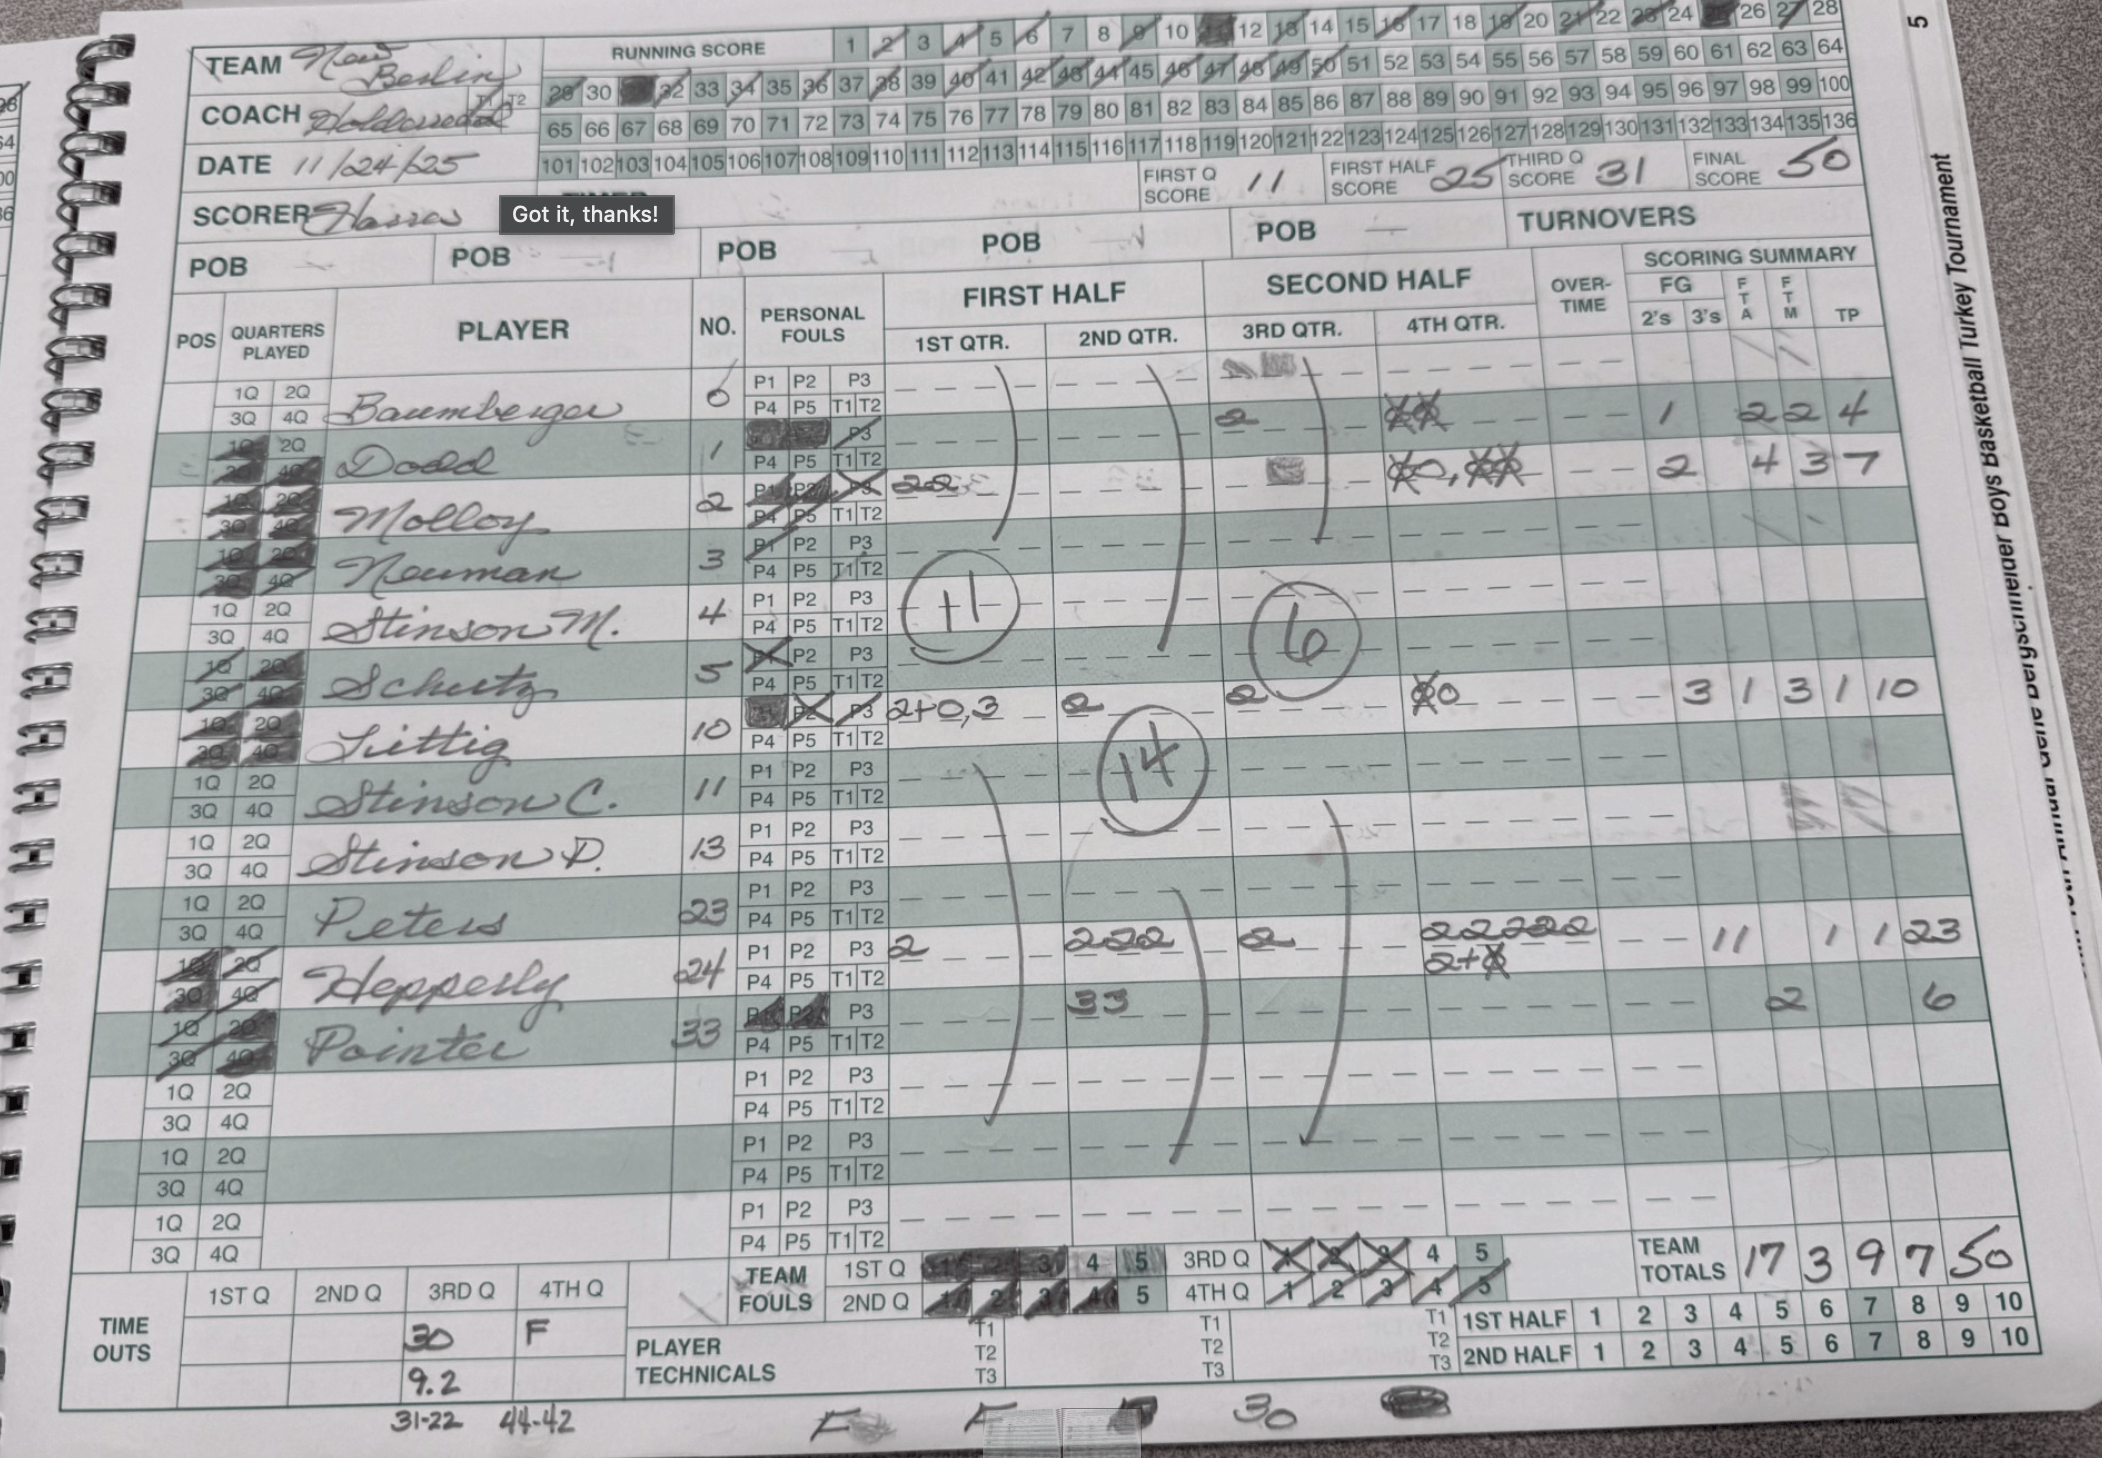 TEAM New Berlin
RUNNING SCORE 1 2 3 4 5 6 7 8 9 10 11 12 13 14 15 16 17 18 19 20 21 22 23 24 25 26 27 28
28 30 32 33 34 35 36 37 38 39 40 41 42 43 44 45 46 47 48 49 50 51 52 53 54 55 56 57 58 59 60 61 62 63 64
65 66 67 68 69 70 71 72 73 74 75 76 77 78 79 80 81 82 83 84 85 86 87 88 89 90 91 92 93 94 95 96 97 98 99 100
101 102 103 104 105 106 107 108 109 110 111 112 113 114 115 116 117 118 119 120 121 122 123 124 125 126 127 128 129 130 131 132 133 134 135 136
COACH T1 T2
DATE 11/24/25
FIRST Q SCORE 11 FIRST HALF SCORE 25 THIRD Q SCORE 31 FINAL SCORE 50
SCORER TIMER
Got it, thanks!
POB POB POB POB POB TURNOVERS
POS QUARTERS PLAYED PLAYER NO. PERSONAL FOULS FIRST HALF SECOND HALF OVER-TIME SCORING SUMMARY
1ST QTR. 2ND QTR. 3RD QTR. 4TH QTR. FG 2's 3's FTA FTM TP
1Q 2Q Baumberger 0 P1 P2 P3
3Q 4Q P4 P5 T1 T2
1Q 2Q Dodd 1 P3 2 1 2 2 4
3Q 4Q P4 P5 T1 T2
1Q 2Q Molloy 2 P1 P2 P3 22 2 4 3 7
3Q 4Q P4 P5 T1 T2
1Q 2Q Neuman 3 P1 P2 P3
3Q 4Q P4 P5 T1 T2
1Q 2Q Stinson M. 4 P1 P2 P3 11 6
3Q 4Q P4 P5 T1 T2
1Q 2Q Schutz 5 P1 P2 P3
3Q 4Q P4 P5 T1 T2
1Q 2Q 10 P2 P3 2+0,3 2 2 3 1 3 1 10
3Q 4Q P4 P5 T1 T2
1Q 2Q Stinson C. 11 P1 P2 P3 14
3Q 4Q P4 P5 T1 T2
1Q 2Q Stinson D. 13 P1 P2 P3
3Q 4Q P4 P5 T1 T2
1Q 2Q Peters 23 P1 P2 P3
3Q 4Q P4 P5 T1 T2
1Q 2Q Hepperly 24 P1 P2 P3 2 222 2 22222 11 1 1 23
3Q 4Q P4 P5 T1 T2 2+
1Q 2Q Pointer 33 P1 P2 P3 33 2 6
3Q 4Q P4 P5 T1 T2
1Q 2Q P1 P2 P3
3Q 4Q P4 P5 T1 T2
1Q 2Q P1 P2 P3
3Q 4Q P4 P5 T1 T2
1Q 2Q P1 P2 P3
3Q 4Q P4 P5 T1 T2
TEAM FOULS 1ST Q 1 2 3 4 5 3RD Q 1 2 3 4 5
2ND Q 1 2 3 4 5 4TH Q 1 2 3 4 5
TEAM TOTALS 17 3 9 7 50
TIME OUTS 1ST Q 2ND Q 3RD Q 4TH Q
30 F
9.2
31-22 44-42
PLAYER TECHNICALS T1 T2 T3 T1 T2 T3 T1 T2 T3
1ST HALF 1 2 3 4 5 6 7 8 9 10
2ND HALF 1 2 3 4 5 6 7 8 9 10
F F 30
5
Boys Basketball Turkey Tournament